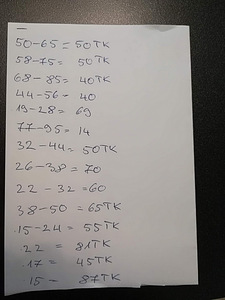 50-65 = 50TK
58-75 = 50TK
68-85 = 40TK
44-56 = 40
19-28 = 69
77-95 = 14
32-44 = 50TK
26-38 = 70
22-32 = 60
38-50 = 65TK
15-24 = 55TK
22 = 81TK
.17 = 45TK
15 - 87TK